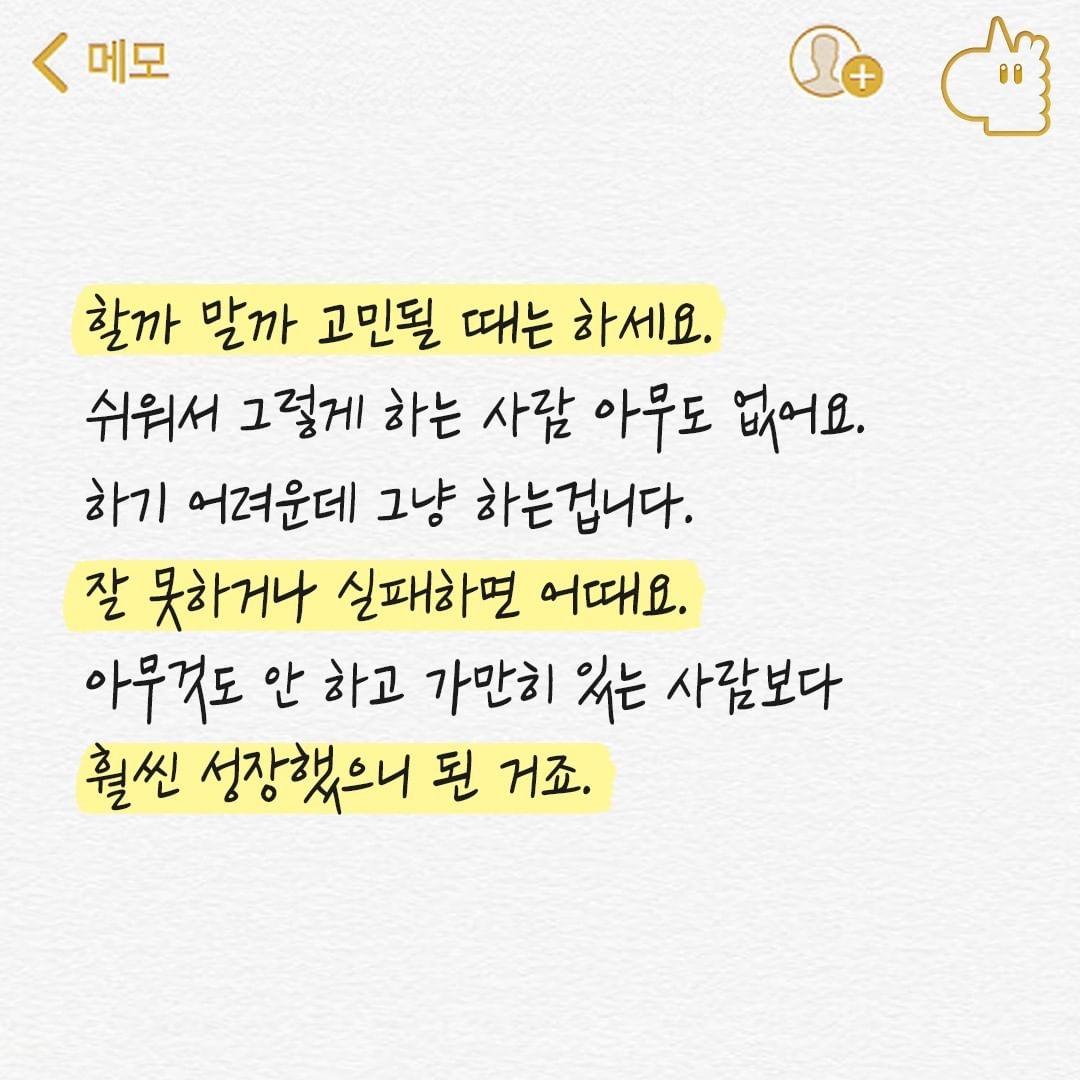 메모
할까 말까 고민될 때는 하세요.
쉬워서 그렇게 하는 사람 아무도 없어요.
하기 어려운데 그냥 하는겁니다.
잘 못하거나 실패하면 어때요.
아무것도 안 하고 가만히 있는 사람보다
훨씬 성장했으니 된 거죠.